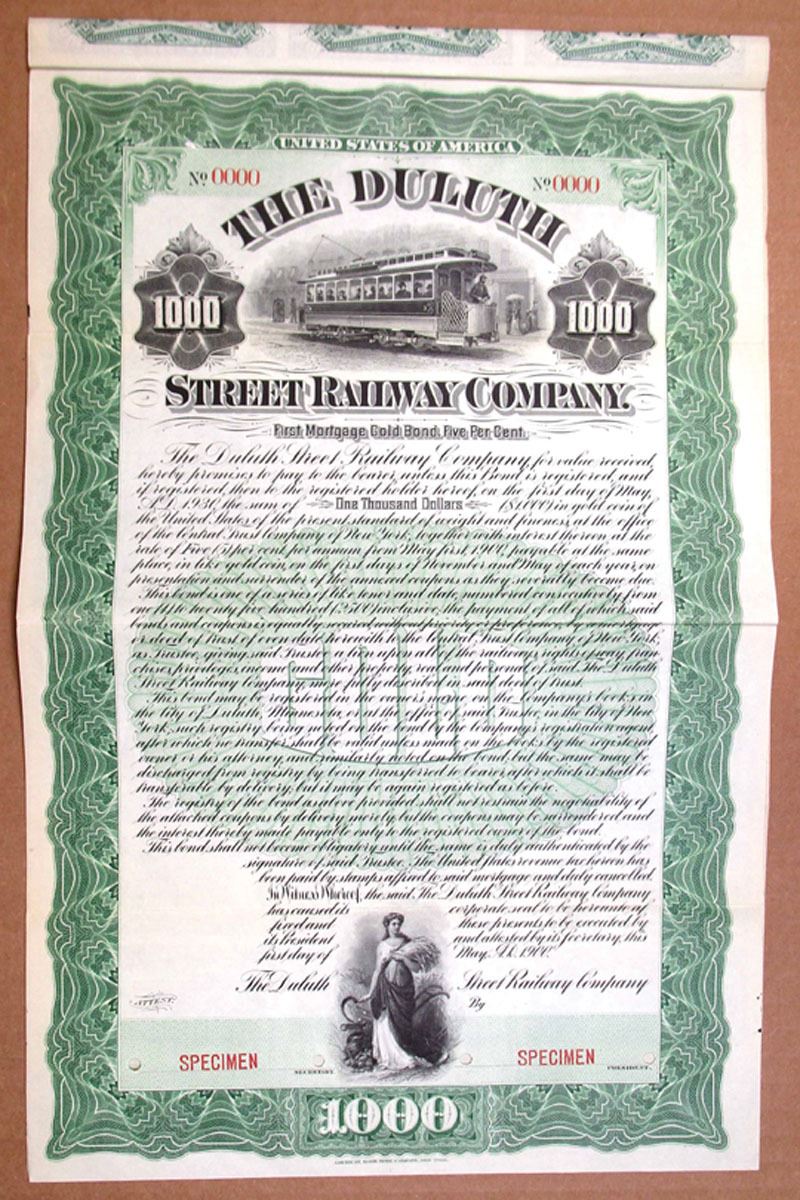 UNITED STATES OF AMERICA
No 0000 No 0000
THE DULUTH
1000 1000
STREET RAILWAY COMPANY.
First Mortgage Gold Bond, Five Per Cent.
The Duluth Street Railway Company, for value received,
hereby promises to pay to the bearer, unless this Bond is registered, and
if registered, then to the registered holder hereof, on the first day of May,
A.D. 1930, the sum of One Thousand Dollars ($1000) in gold coin of
the United States of the present standard of weight and fineness, at the office
of the Central Trust Company of New York, together with interest thereon at the
rate of Five (5) per cent. per annum from May first, 1900, payable at the same
place, in like gold coin, on the first days of November and May of each year, on
presentation and surrender of the annexed coupons as they severally become due.
This bond is one of a series of like tenor and date, numbered consecutively from
one (1) to twenty five hundred (2500) inclusive, the payment of all of which said
bonds and coupons is equally secured, without priority or preference, by a mortgage
or deed of trust of even date herewith, to the Central Trust Company of New York,
as Trustee, giving said Trustee a lien upon all of the railways, rights of way, fran-
chises, privileges, income and other property, real and personal, of said The Duluth
Street Railway Company, more fully described in said deed of trust.
This bond may be registered in the owner's name on the Company's books in
the City of Duluth, Minnesota, or at the office of said Trustee, in the City of New
York, such registry being noted on the bond by the Company's registration agent,
after which no transfer shall be valid unless made on the books by the registered
owner or his attorney, and similarly noted on the bond, but the same may be
discharged from registry by being transferred to bearer, after which it shall be
transferable by delivery, but it may be again registered as before.
The registry of the bond as above provided shall not restrain the negotiability of
the attached coupons by delivery merely, but the coupons may be surrendered and
the interest thereby made payable only to the registered owner of the bond.
This bond shall not become obligatory until the same is duly authenticated by the
signature of said Trustee. The United States revenue tax hereon has
been paid by stamps affixed to said mortgage and duly cancelled.
In Witness Whereof, the said, The Duluth Street Railway Company
has caused its corporate seal to be hereunto af-
fixed and these presents to be executed by
its President and attested by its Secretary, this
first day of May, A.D. 1900.
The Duluth Street Railway Company
ATTEST: By
GOLD
SPECIMEN SPECIMEN
SECRETARY. PRESIDENT.
1000
AMERICAN BANK NOTE COMPANY, NEW YORK.